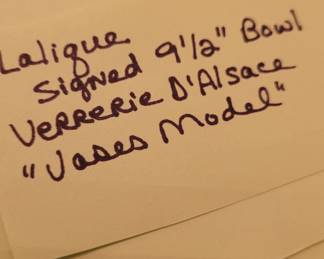 Lalique
Signed 9 1/2" Bowl
Verrerie D'Alsace
"Vases Model"